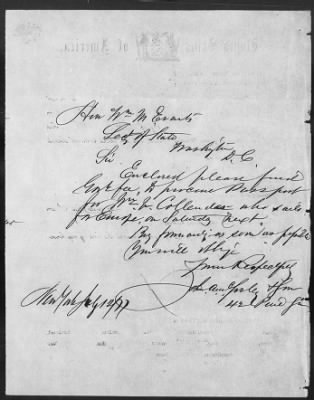 Hon Wm M. Evarts
Secty of State
Washington D. C.
Sir
Enclosed please find
to procure Passport
for Wm J. Callender who sails
for Europe, on Saturday next
By forwarding as soon as possible
You will oblige
Yours Respectfly
New York July 10/77
42 Pine St